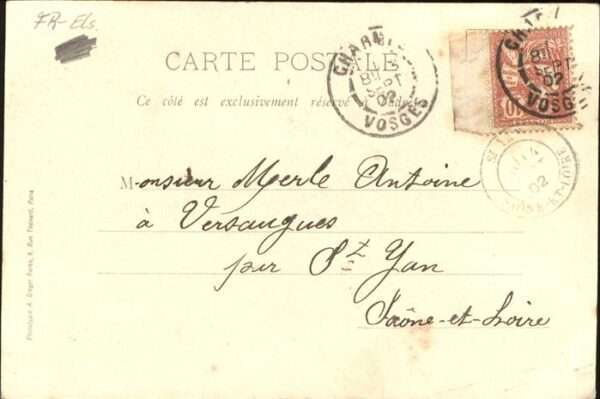 FR-Els
CARTE POSTALE
Ce côté est exclusivement réservé à l'adresse
CHARM
8
SEPT
02
VOSGES
8
SEPT
02
VOSGES
10
02
SAÔNE-ET-LOIRE
Monsieur Merle Antoine
à Versaugues
par St Yan
Saône-et-Loire